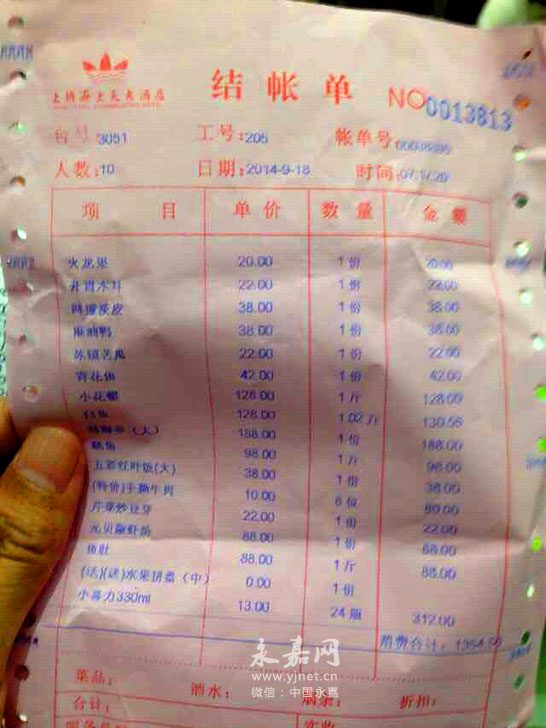 结帐单
NO0013813
台号:3051 工号:205 帐单号
人数:10 日期:2014-9-18 时间:
项 目 单价 数量 金额
火龙果 20.00 1份 20.00
22.00 1份 22.00
38.00 1份 38.00
麻油鸭 38.00 1份 38.00
冻镇苦瓜 22.00 1份 22.00
42.00 1份 42.00
小花螺 128.00 1斤 128.00
128.00 1.02斤 130.56
(大) 188.00 1份 188.00
98.00 1斤 98.00
五彩红叶饭(大) 38.00 1份 38.00
(特价)手撕牛肉 10.00 8份
芹菜炒豆芽 22.00 22.00
88.00 1份 88.00
鱼肚 88.00 1斤 88.00
(送)(送)水果拼盘(中) 0.00 1份
小喜力330ml 13.00 24瓶 312.00
消费合计:
永嘉网
www.yjnet.cn
微信:中国永嘉
菜品: 酒水: 烟茶: 折扣:
合计: